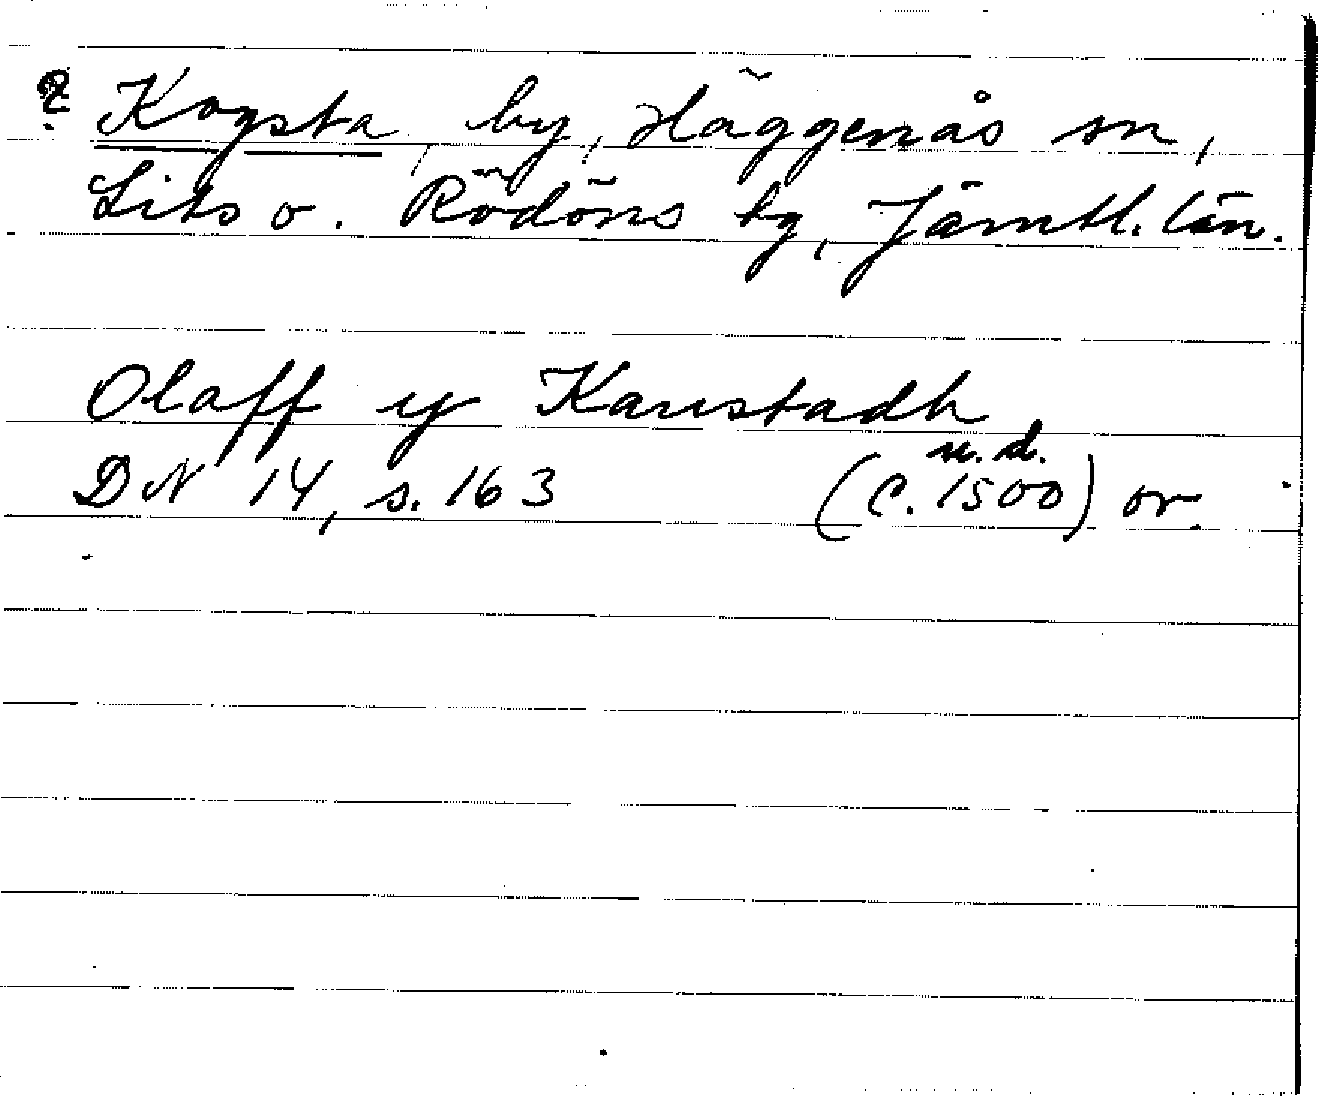 ? Kogsta, by, Häggenås sn,
Lits o. Rödöns tg, Jämtl. län.
Olaff y Kaustadh
u. d.
DN 14, s. 163 (c. 1500) or.